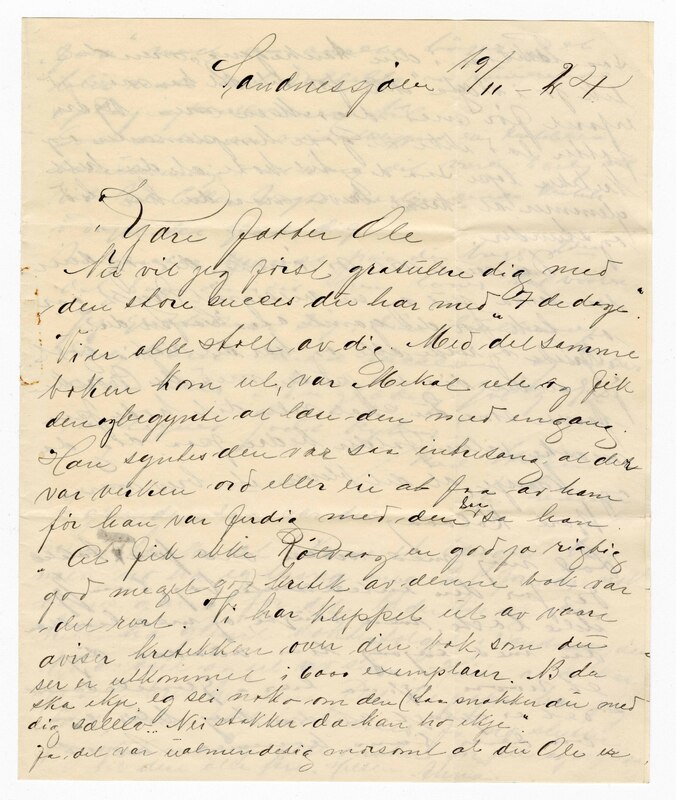 Sandnessjøen 19/11 - 24.
Kjære Fætter Ole
Nu vil jeg først gratulere dig med
den store succes du har med "I de dage".
Vi er alle stolt av dig. Med det samme
boken kom ut, var Mikal ute og fik
den og begynte at læse den med engang.
Han syntes den var saa intresang at der
var verken ord eller  at faa av ham
før han var ferdig med den  sa han
At fik ikke Rölvaag en god ja rigtig
god meget god kritik av denne bok var
det rart. Vi har klippet ut av vaare
aviser kretikken over din bok som du
ser er utkommet i 6000 exemplaer. N B da
ska ikje eg sei noko om den (Saa snakker du med
dig sælell. Nei stakker da kan ho ikje"
Ja, det var ualmindelig morsomt at du Ole er